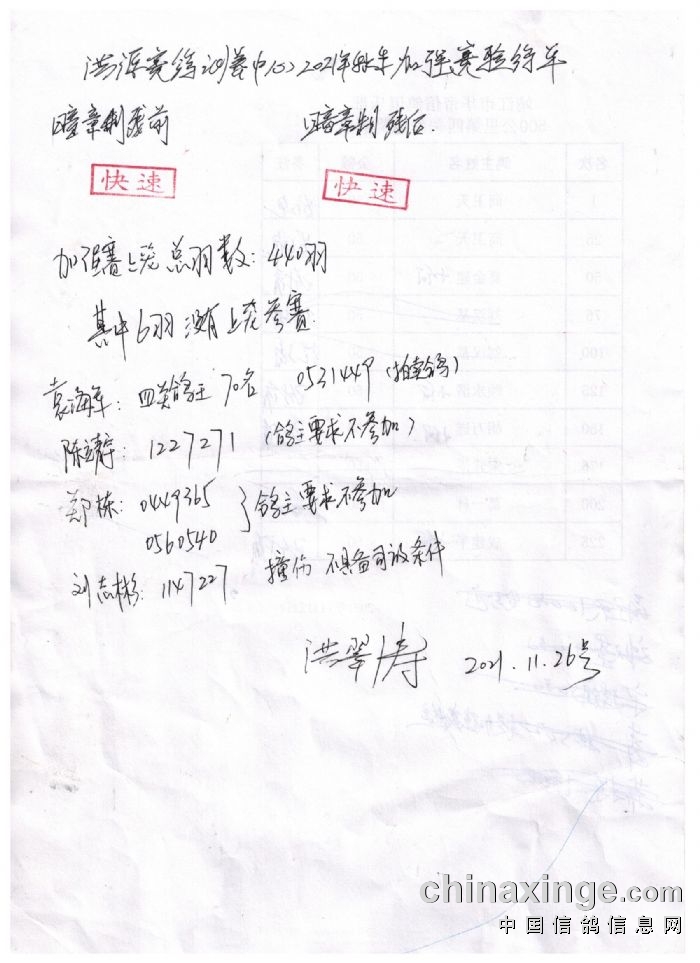 洪源赛鸽训养中心2021年秋季加强赛验鸽单
暗章制残前 暗章制残后.
快速 快速
加强赛上笼总羽数: 440羽
其中6羽没有上笼参赛.
袁海军: 四关鸽王70名 0531449 (拍卖鸽)
陈靖: 1227271 (鸽主要求不参加)
郑栋: 0449365 鸽主要求不参加
0560540
刘志彬: 1147227 撞伤 不具备司放条件
洪翠涛 2021.11.26号
chinaxinge.com
中国信鸽信息网